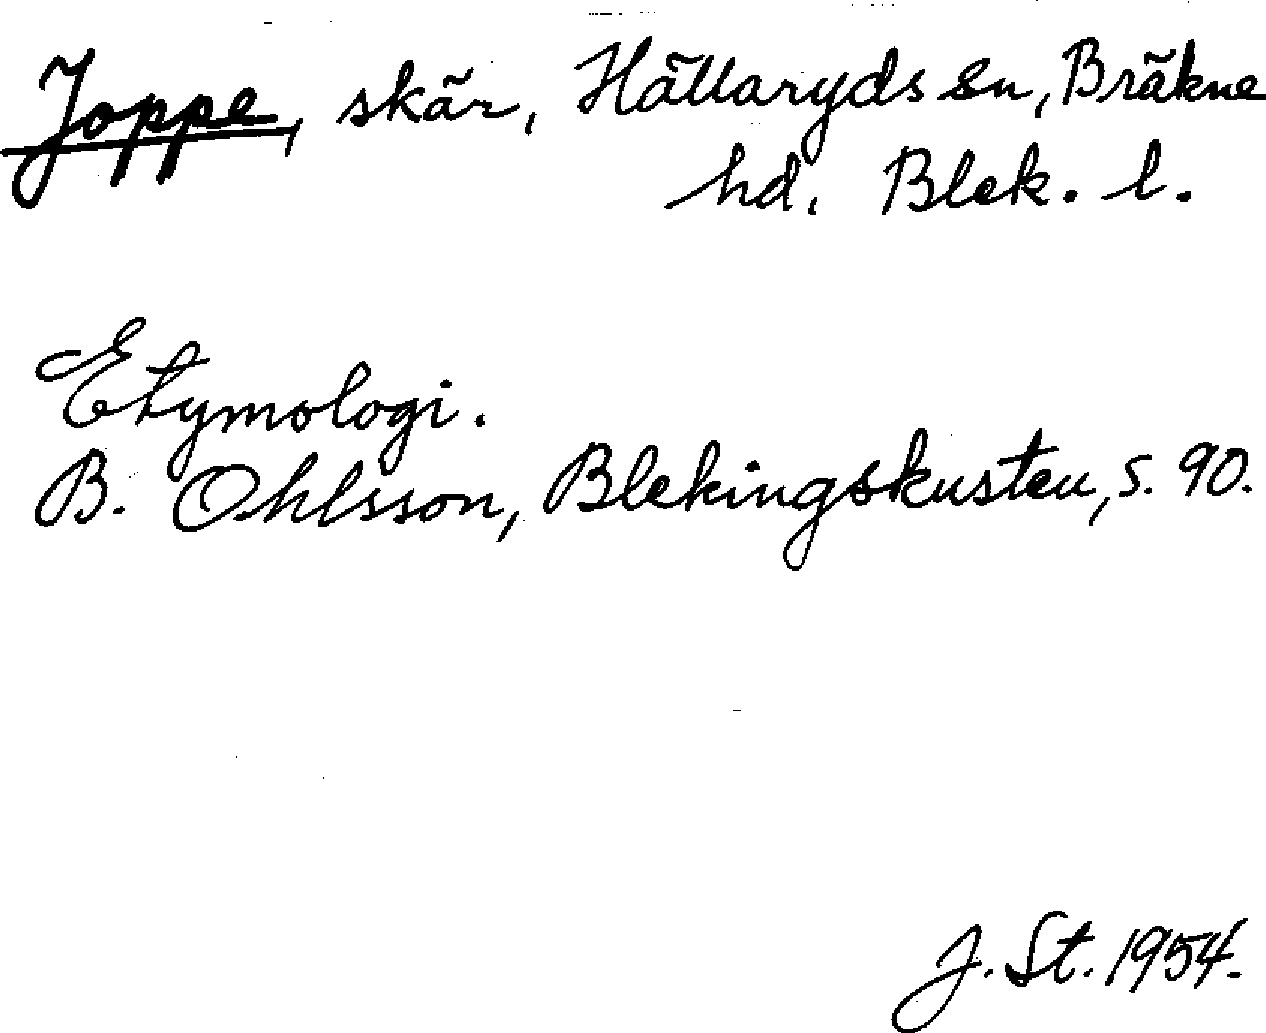 Joppe, skär, Hällaryds sn, Bräkne
hd, Blek. l.
Etymologi.
B. Ohlsson, Blekingskusten, s. 90.
J. St. 1954.